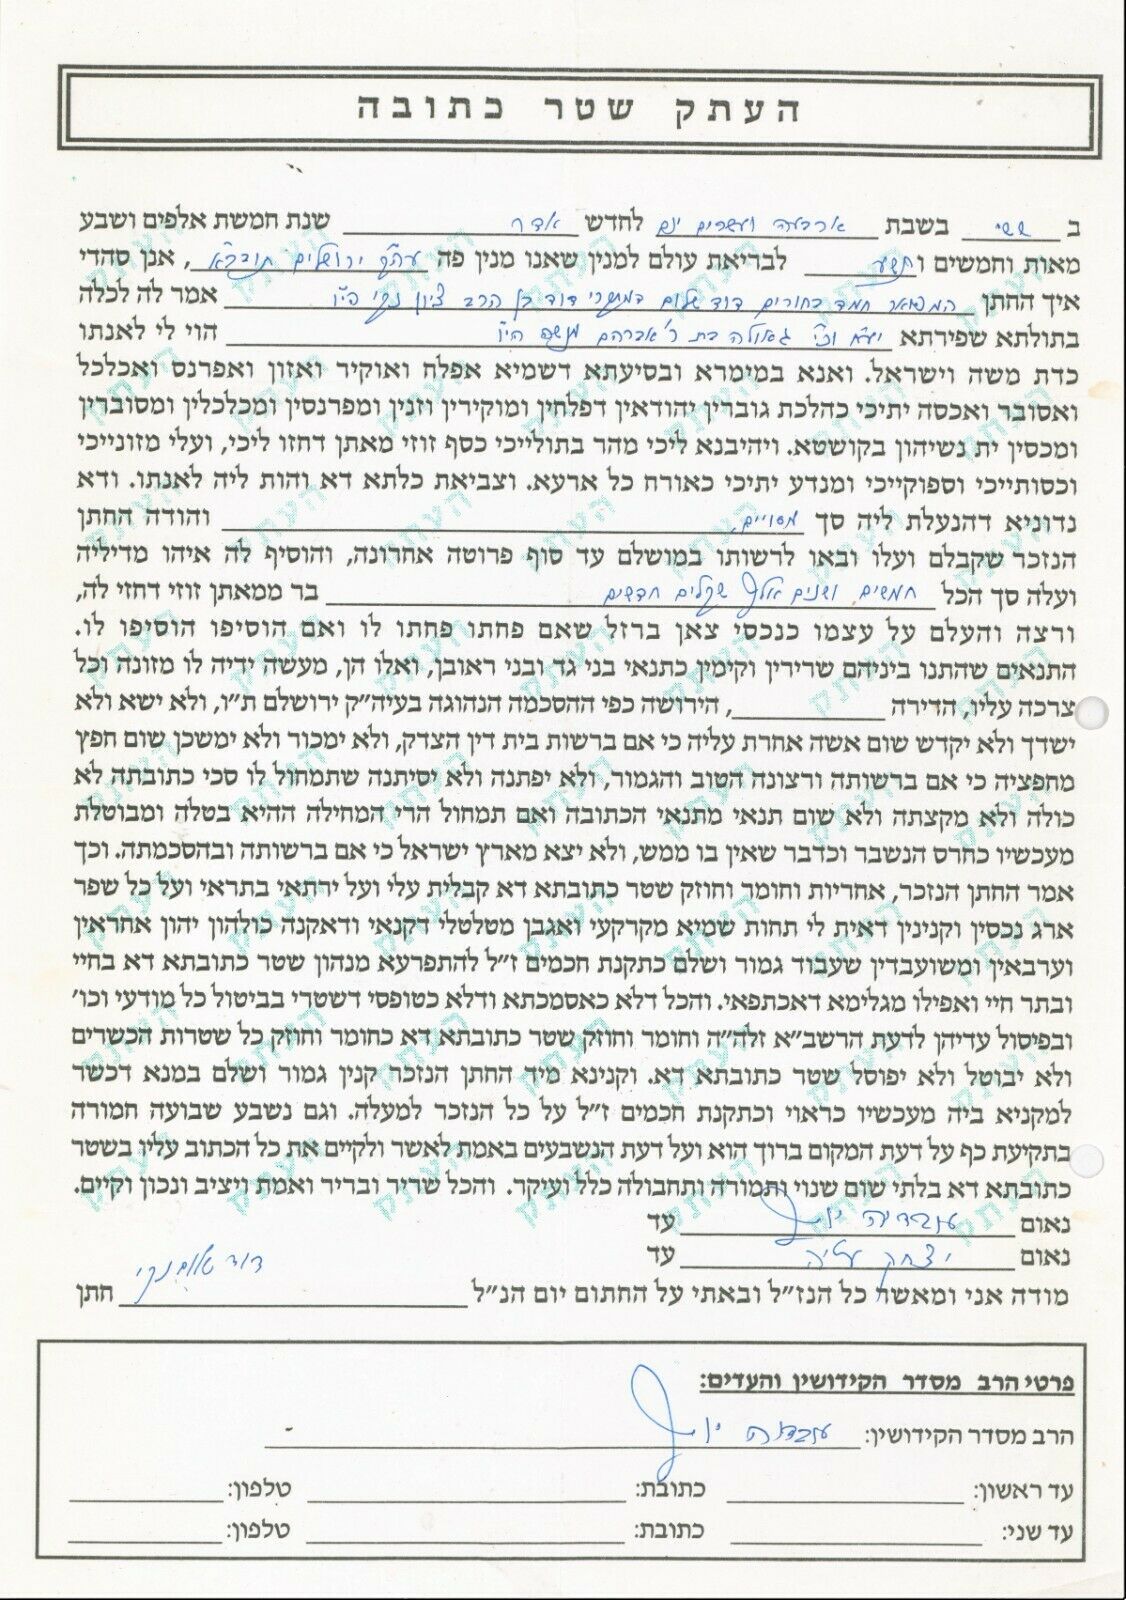 העתק שטר כתובה
ב ששי בשבת ארבעה ועשרים יום לחדש אדר שנת חמשת אלפים ושבע
מאות וחמשים ותשע לבריאת עולם למנין שאנו מנין פה עיה״ק ירושלים תובב״א, אנן סהדי
איך החתן המפואר חמד בחורים דוד שלום המתקרי דוד בן הרב ציון נקי הי״ו אמר לה לכלה
בתולתא שפירתא יע״מ וכו׳ גאולה בת ר׳ אברהם מנשה הי״ו הוי לי לאנתו
כדת משה וישראל. ואנא במימרא ובסיעתא דשמיא אפלח ואוקיר ואזון ואפרנס ואכלכל
ואסובר ואכסה יתיכי כהלכת גוברין יהודאין דפלחין ומוקירין וזנין ומפרנסין ומכלכלין ומסוברין
ומכסין ית נשיהון בקושטא. ויהיבנא ליכי מהר בתולייכי כסף זוזי מאתן דחזו ליכי, ועלי מזונייכי
וכסותייכי וספוקייכי ומנדע יתיכי כאורח כל ארעא. וצביאת כלתא דא והות ליה לאנתו. ודא
נדוניא דהנעלת ליה סך מסויים, והודה החתן
הנזכר שקבלם ועלו ובאו לרשותו במושלם עד סוף פרוטה אחרונה, והוסיף לה איהו מדיליה
ועלה סך הכל חמשים ושנים אלף שקלים חדשים בר ממאתן זוזי דחזי לה,
ורצה והעלם על עצמו כנכסי צאן ברזל שאם פחתו פחתו לו ואם הוסיפו הוסיפו לו.
התנאים שהתנו ביניהם שרירין וקימין כתנאי בני גד ובני ראובן, ואלו הן, מעשה ידיה לו מזונה וכל
צרכה עליו, הדירה , הירושה כפי ההסכמה הנהוגה בעיה״ק ירושלם ת״ו, ולא ישא ולא
ישדך ולא יקדש שום אשה אחרת עליה כי אם ברשות בית דין הצדק, ולא ימכור ולא ימשכן שום חפץ
מחפציה כי אם ברשותה ורצונה הטוב והגמור, ולא יפתנה ולא יסיתנה שתמחול לו סכי כתובתה לא
כולה ולא מקצתה ולא שום תנאי מתנאי הכתובה ואם תמחול הרי המחילה ההיא בטלה ומבוטלת
מעכשיו כחרס הנשבר וכדבר שאין בו ממש, ולא יצא מארץ ישראל כי אם ברשותה ובהסכמתה. וכך
אמר החתן הנזכר, אחריות וחומר וחוזק שטר כתובתא דא קבלית עלי ועל ירתאי בתראי ועל כל שפר
ארג נכסין וקנינין דאית לי תחות שמיא מקרקעי ואגבן מטלטלי דקנאי ודאקנה כולהון יהון אחראין
וערבאין ומשועבדין שעבוד גמור ושלם כתקנת חכמים ז״ל להתפרעא מנהון שטר כתובתא דא בחיי
ובתר חיי ואפילו מגלימא דאכתפאי. והכל דלא כאסמכתא ודלא כטופסי דשטרי בביטול כל מודעי וכו׳
ובפיסול עדיהן לדעת הרשב״א זלה״ה וחומר וחוזק שטר כתובתא דא כחומר וחוזק כל שטרות הכשרים
ולא יבוטל ולא יפוסל שטר כתובתא דא. וקנינא מיד החתן הנזכר קנין גמור ושלם במנא דכשר
למקניא ביה מעכשיו כראוי וכתקנת חכמים ז״ל על כל הנזכר למעלה. וגם נשבע שבועה חמורה
בתקיעת כף על דעת המקום ברוך הוא ועל דעת הנשבעים באמת לאשר ולקיים את כל הכתוב עליו בשטר
כתובתא דא בלתי שום שנוי ותמורה ותחבולה כלל ועיקר. והכל שריר ובריר ואמת ויציב ונכון וקיים.
נאום עובדיה יוסף עד
נאום יצחק עטיה עד
מודה אני ומאשר כל הנז״ל ובאתי על החתום יום הנ״ל דוד שלום נקי חתן
פרטי הרב מסדר הקידושין והעדים:
הרב מסדר הקידושין: עובדיה יוסף
עד ראשון: כתובת: טלפון:
עד שני: כתובת: טלפון: